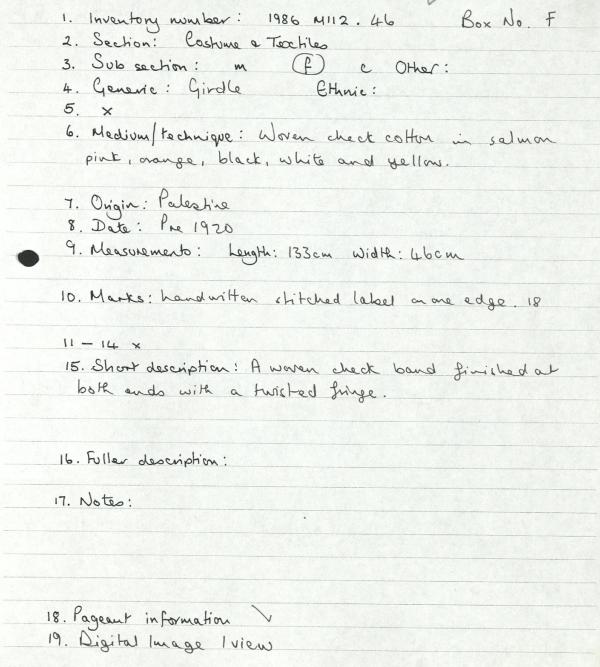 1. Inventory number: 1986 M112.46 Box No. F
2. Section: Costume & Textiles
3. Sub section: m f c Other:
4. Generic: Girdle Ethnic:
5. x
6. Medium/technique: Woven check cotton in salmon
pink, orange, black, white and yellow.
7. Origin: Palestine
8. Date: Pre 1920
9. Measurements: Length: 133cm Width: 46cm
10. Marks: handwritten stitched label on one edge. 18
11 - 14 x
15. Short description: A woven check band finished at
both ends with a twisted fringe.
16. Fuller description:
17. Notes:
18. Pageant information \
19. Digital Image 1 view